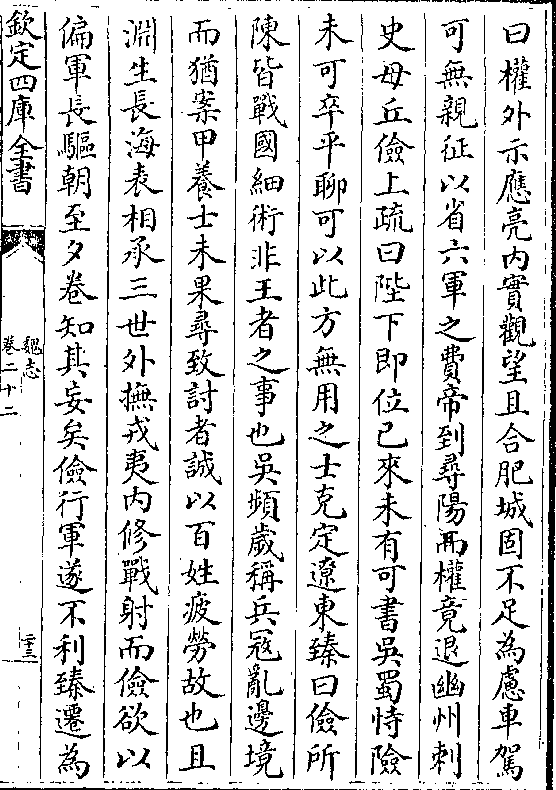 曰權外示應亮内實觀望且合肥城固不足為慮車駕
可無親征以省六軍之費帝到尋陽而權竟退幽州刺
史毋丘儉上疏曰陛下即位已來未有可書吳蜀恃險
未可卒平聊可以此方無用之士克定遼東臻曰儉所
陳皆戰國細術非王者之事也吳頻歲稱兵冦亂邊境
而猶案甲養士未果尋致討者誠以百姓疲勞故也且
淵生長海表相承三世外撫戎夷内修戰射而儉欲以
偏軍長驅朝至夕卷知其妄矣儉行軍遂不利臻遷為
欽定四庫全書
魏志
卷二十二
二十三